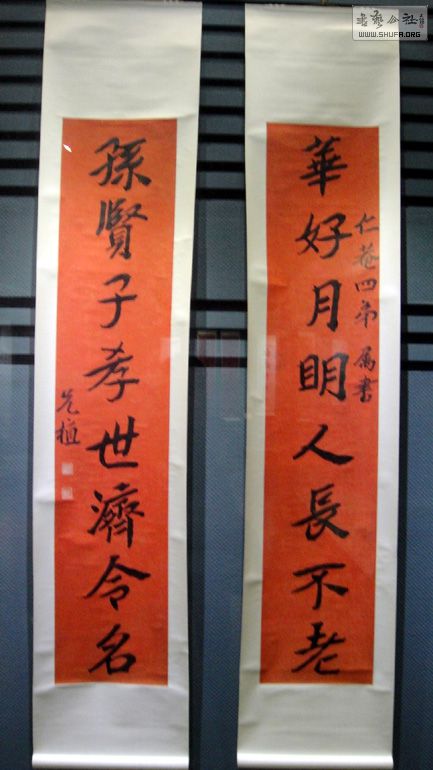 華好月明人長不老
仁菴四弟 屬書
孫賢子孝世濟令名
兄植
書藝公社
WWW.SHUFA.ORG